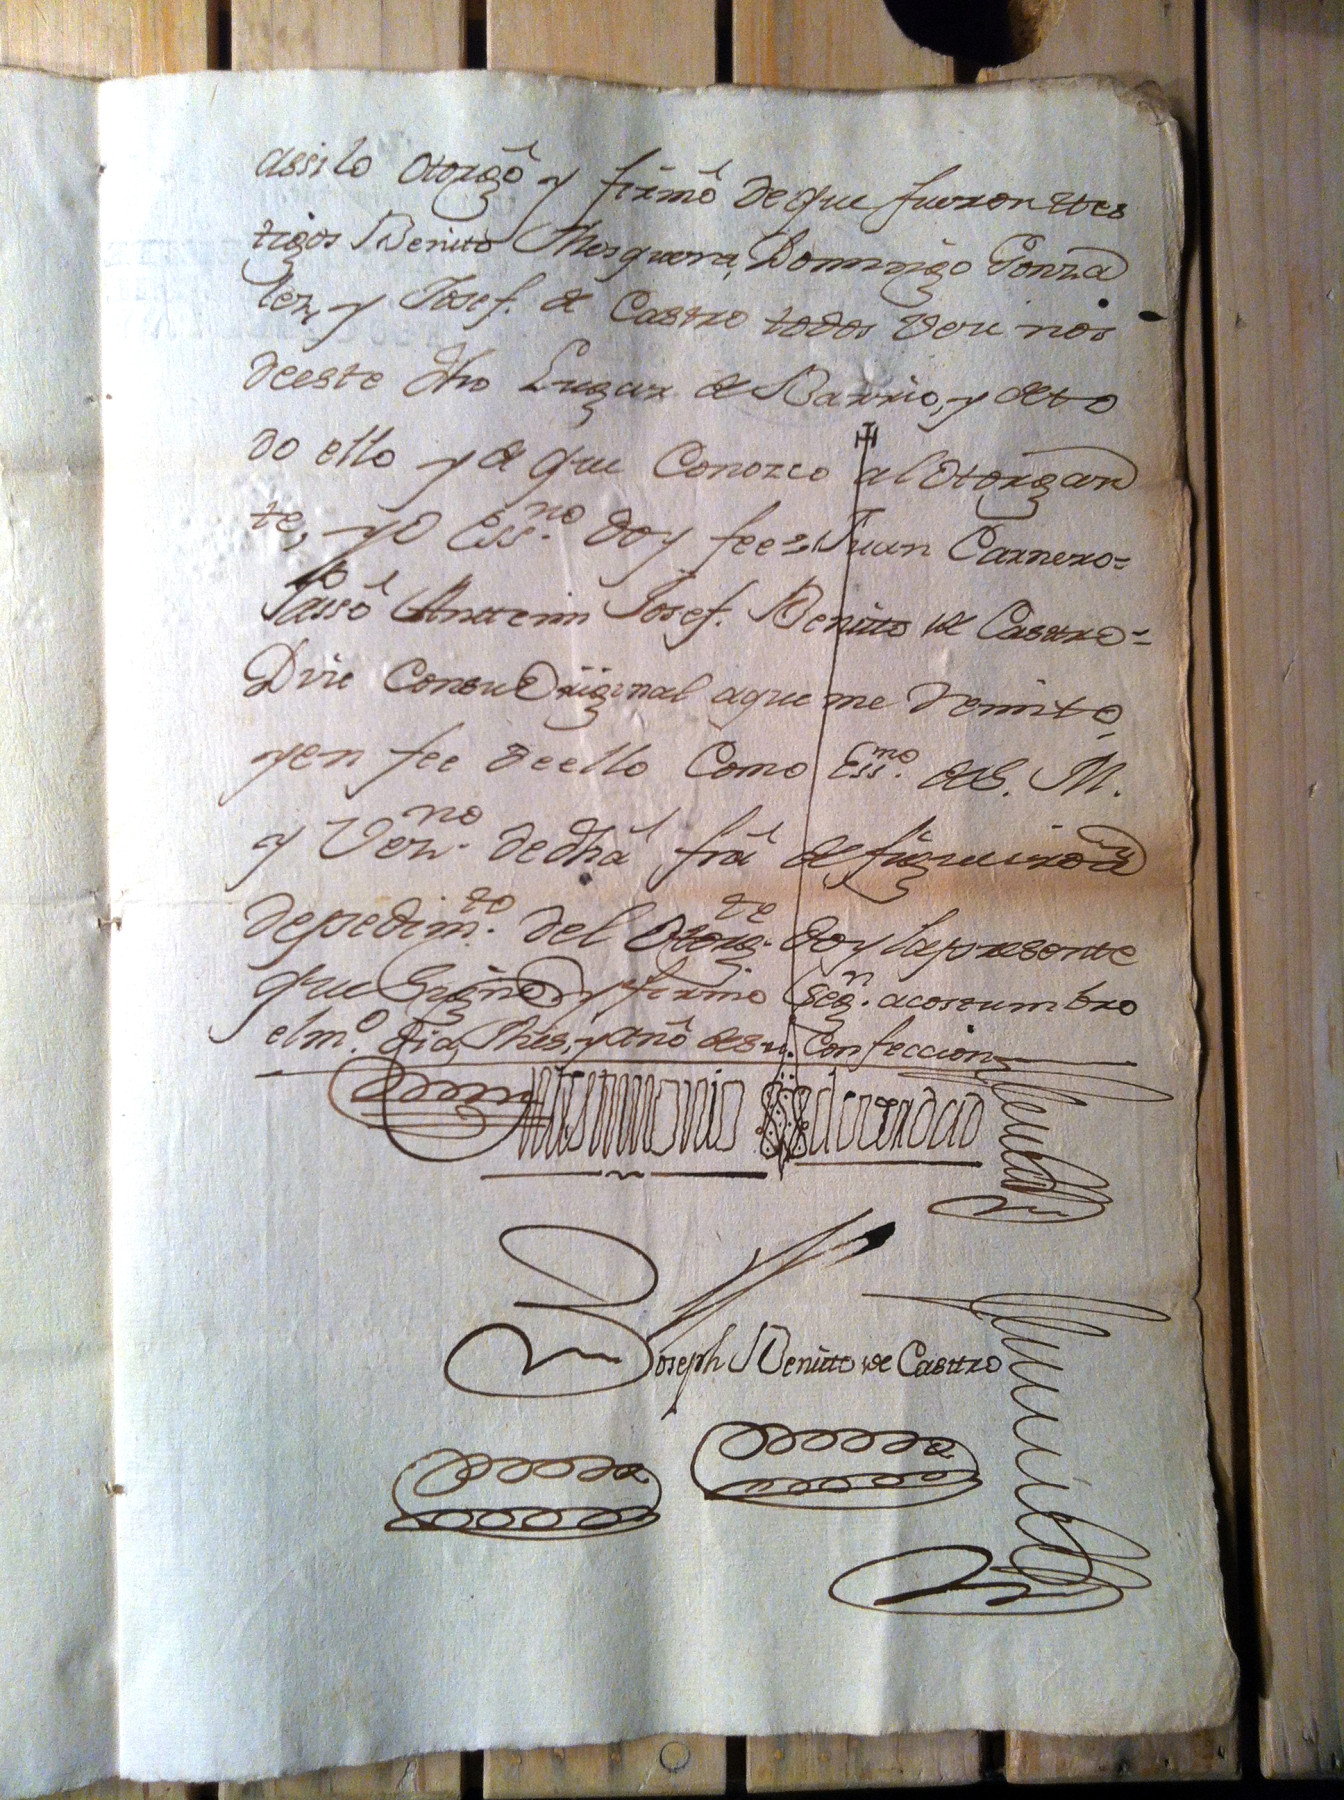 assi lo otorgó y firmó de que fueron ttes
tigos Benito Mosquera, Domingo Gonza
lez, y Josef. de Castro todos vezinos
deeste dho Lugar de Barrio, y deto
do ello y de que Conozco al otorgan
te, yo Ess.no doy fee = Juan Carnero =
Passó Antemi Josef. Benitto de Casttro =
Dize Consu Original aque me Remito,
yen fee deello Como Ess.no de S. M.
y Vez.no dedha fra de figueiroa
depedim.to del otorg.te doy lapresente
que Signo y firmo Seg.n acostumbro
elm.o dia, Mes, y año desu Confeccion
Entestimonio de verdad
Joseph Benitto de Casttro